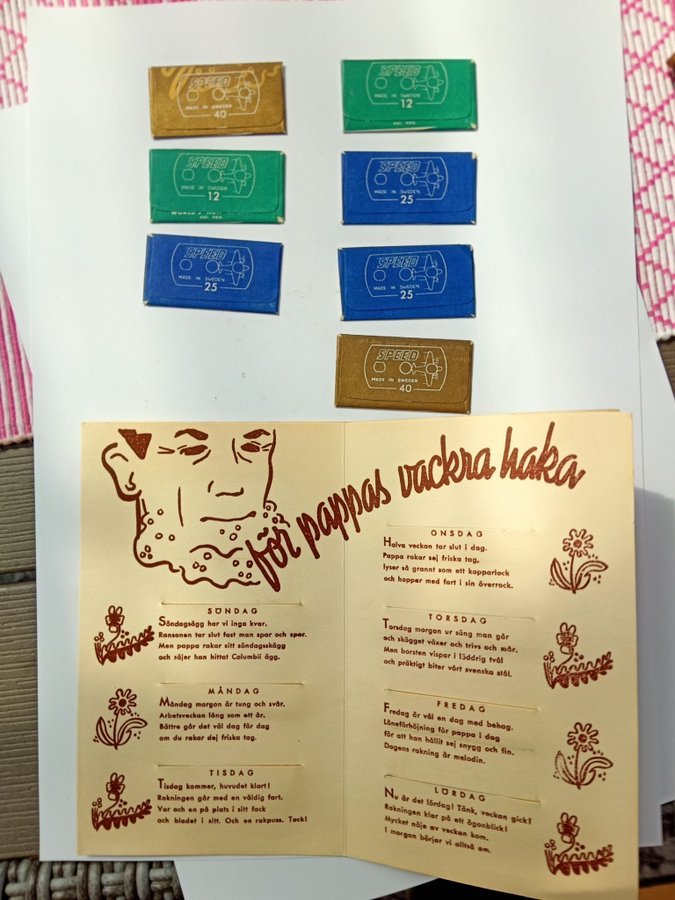 SPEED
MADE IN SWEDEN
40
SPEED
12
SPEED
MADE IN SWEDEN
12
SPEED
MADE IN SWEDEN
25
SPEED
MADE IN SWEDEN
25
SPEED
MADE IN SWEDEN
25
SPEED
MADE IN SWEDEN
40
för pappas vackra haka
SÖNDAG
Söndagsägg har vi inga kvar.
Ransonen tar slut fast man spar och spar.
Men pappa rakar sitt söndagsskägg
och säjer han hittat Columbii ägg.
MÅNDAG
Måndag morgon är tung och svår.
Arbetsveckan lång som ett år.
Bättre går det väl dag för dag
om du rakar dej friska tag.
TISDAG
Tisdag kommer, huvudet klart!
Rakningen går med en väldig fart.
Var och en på plats i sitt fack
och bladet i sitt. Och en rakpuss. Tack!
ONSDAG
Halva veckan tar slut i dag.
Pappa rakar sej friska tag,
lyser så grannt som ett kopparlock
och hoppar med fart i sin överrock.
TORSDAG
Torsdag morgon ur säng man går
och skägget växer och trivs och mår.
Men borsten vispar i löddrig tvål
och präktigt biter vårt svenska stål.
FREDAG
Fredag är väl en dag med behag.
Löneförhöjning för pappa i dag
för att han hållit sej snygg och fin.
Dagens rakning är melodin.
LÖRDAG
Nu är det lördag! Tänk, veckan gick!
Rakningen klar på ett ögonblick!
Mycket nöje av veckan kom.
I morgon börjar vi alltså om.